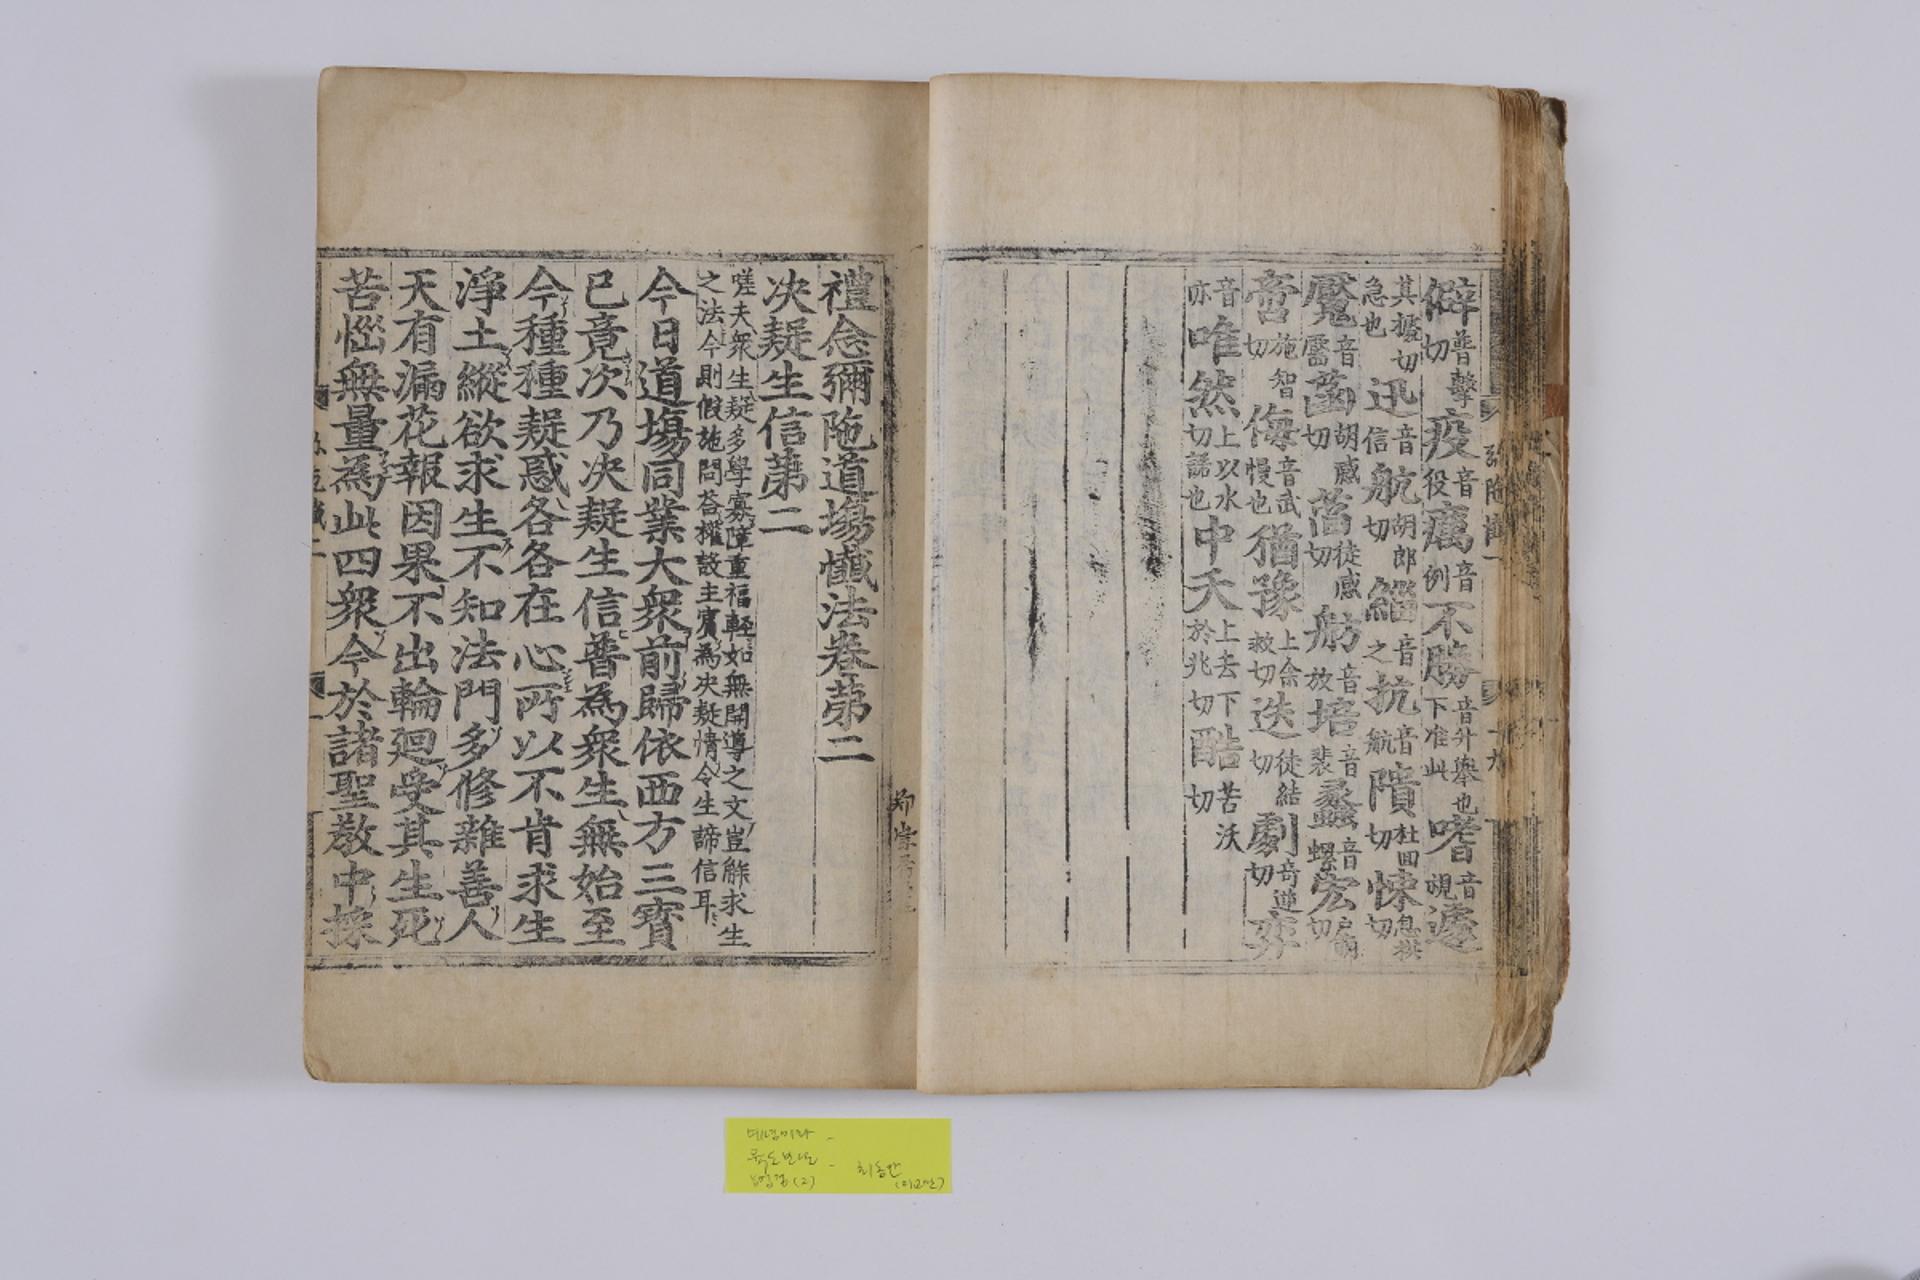 僻普擊切疫音役癘音例不勝音升舉也下准此嗜音視遽
其據切急也迅音信航胡郎切緇音之抗音航隤杜回切悚息拱切
魘音黶菡胡感切萏徒感切舫音放培音裴蠡音螺宏戶萌切
啻施智切侮音武慢也猶豫上余救切迭徒結切劇奇逆切弈
音亦唯然上以水切諾也中夭上去下於兆切酷苦沃切
禮念彌陁道場懺法卷第二
决疑生信第二
嗟夫衆生疑多學寡障重福輕如無開導之文豈能求生
之法今則假施問荅權設主賓為决疑情令生諦信耳
今日道場同業大衆前歸依西方三寶
已竟次乃决疑生信普為衆生無始至
今種種疑惑各各在心所以不肯求生
淨土縱欲求生不知法門多修雜善人
天有漏花報因果不出輪廻受其生死
苦惱無量為此四衆今於諸聖教中採